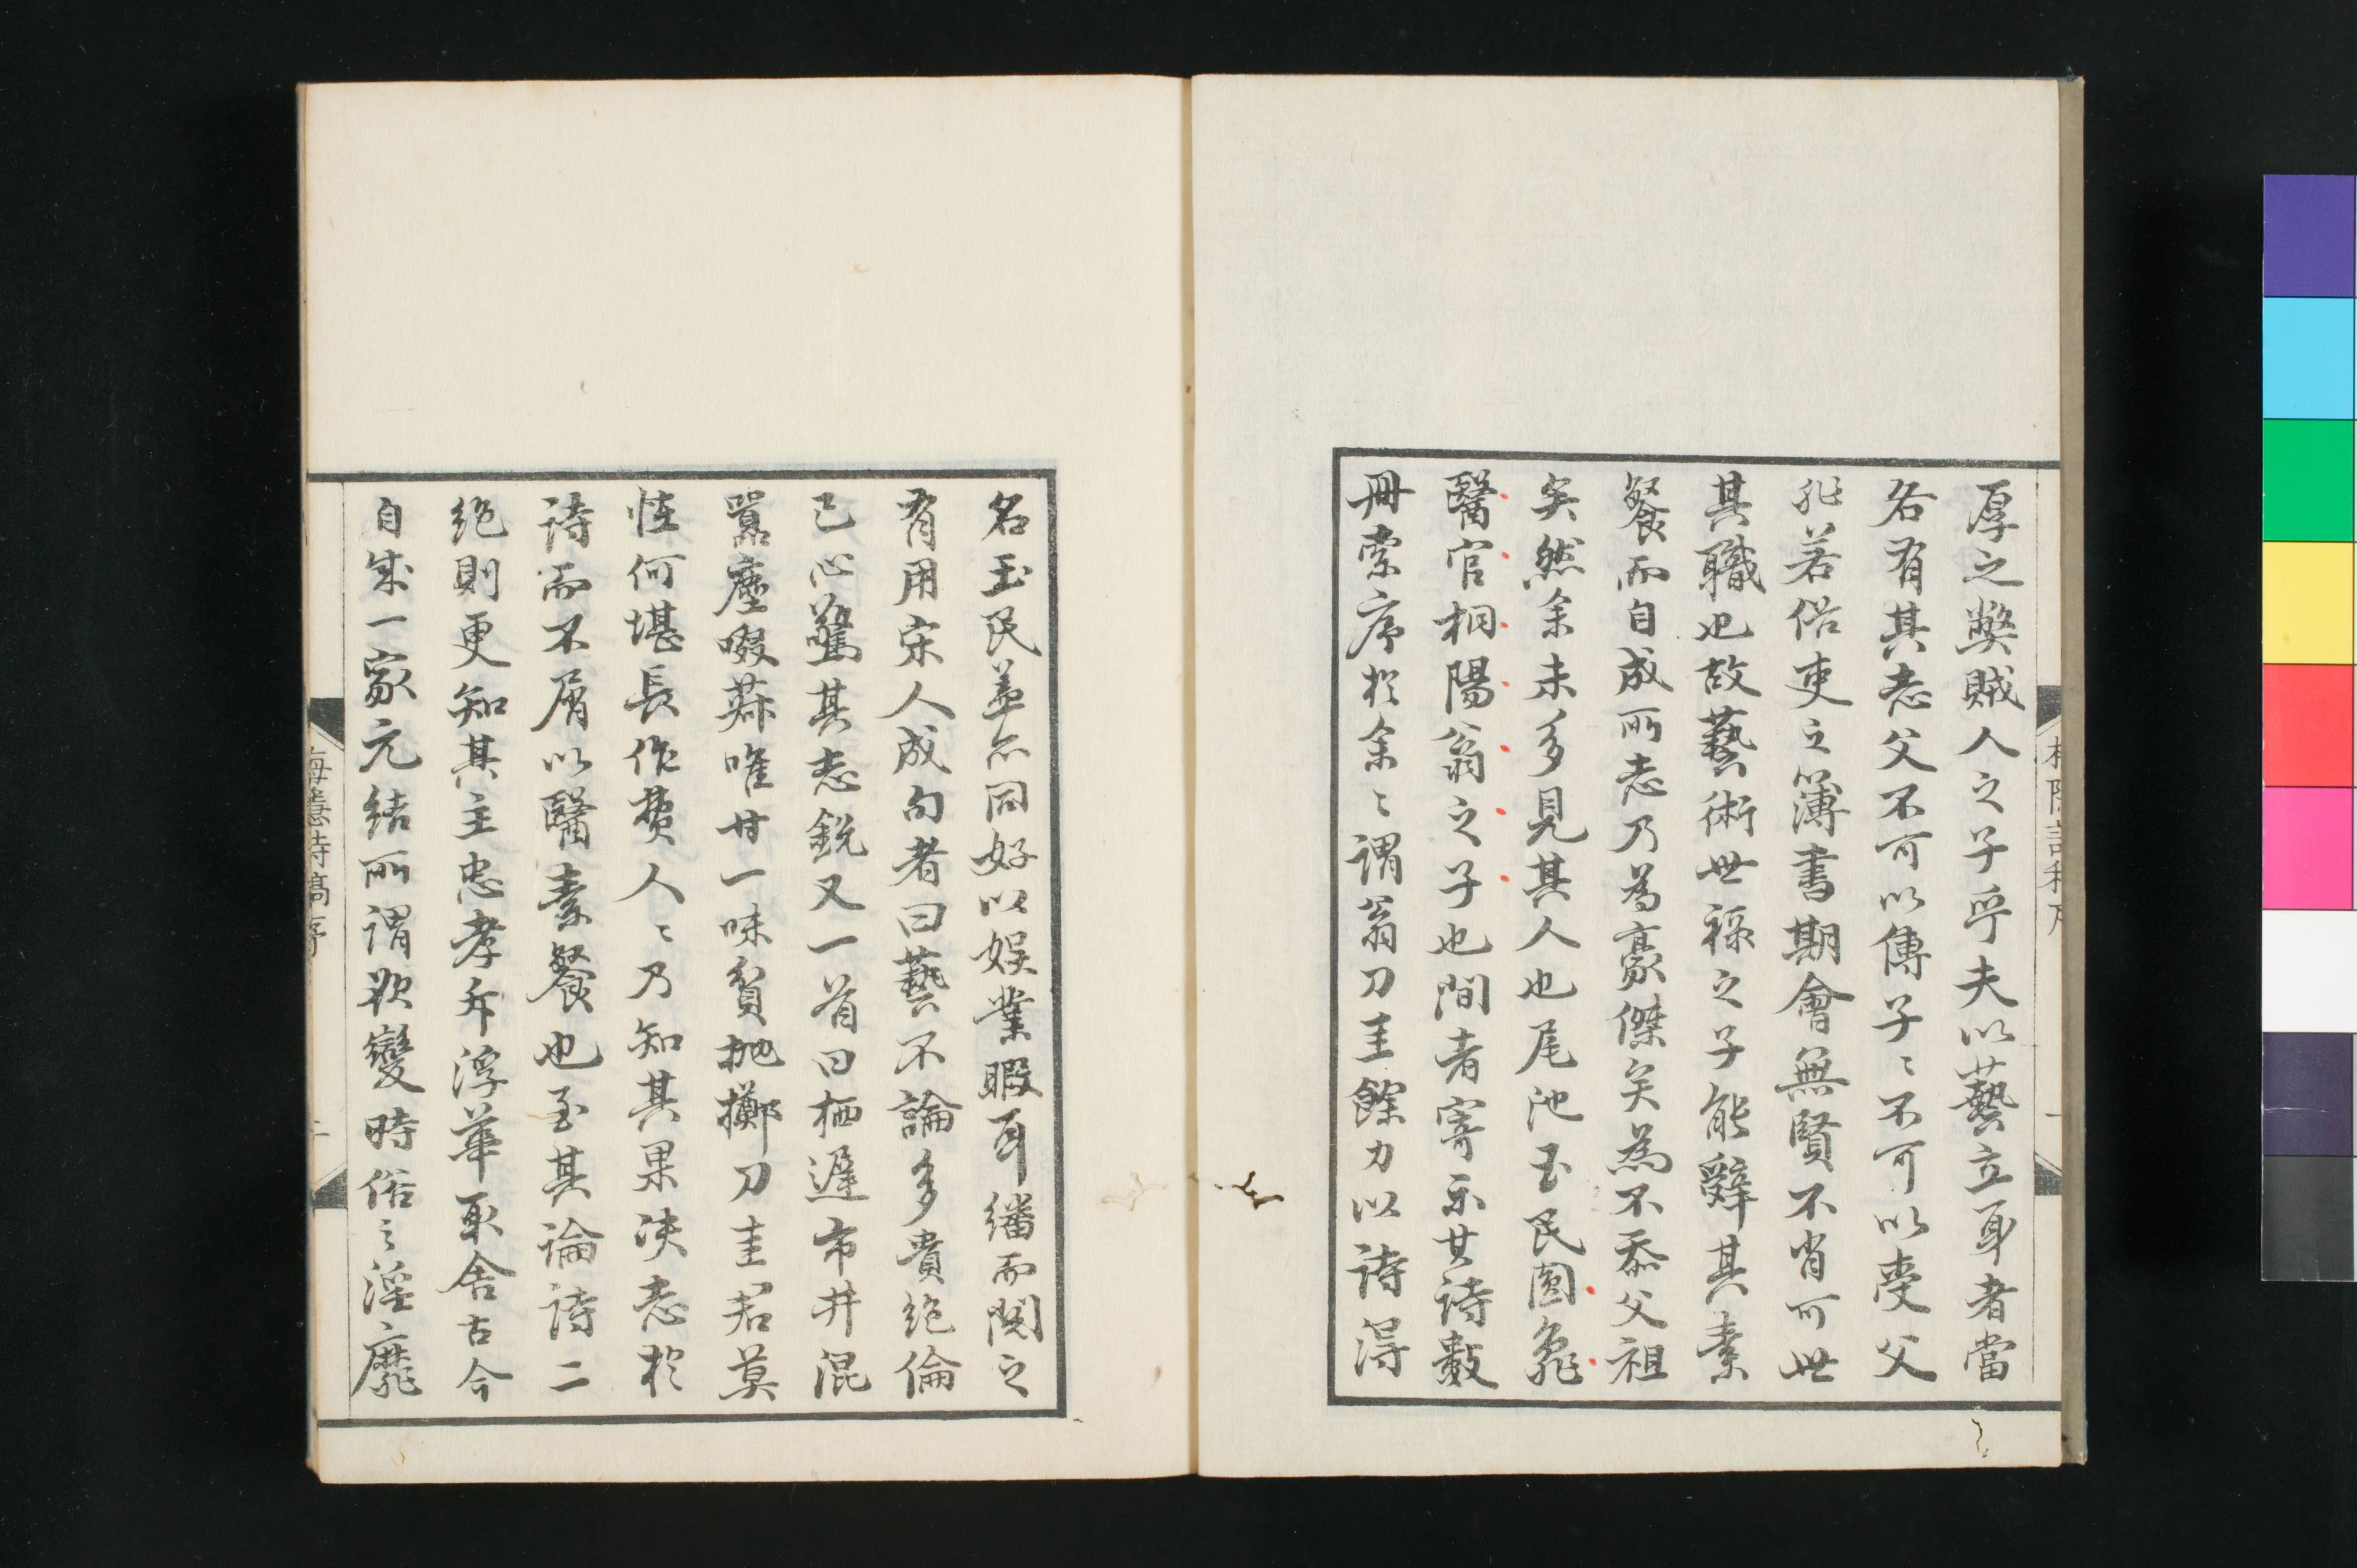 厚之獘賊人之子乎夫以藝立身者當
各有其志父不可以傳子〻不可以受父
非若俗吏之簿書期會無賢不肖可世
其職也故藝術世祿之子能辭其素
餐而自成所志乃為豪傑矣為不忝父祖
矣然余未多見其人也尾池玉民園龜
醫官桐陽翁之子也間者寄示其詩數
冊索序於余〻謂翁刀圭餘力以詩得
名玉民盖亦同好以娛業暇耳繙而閱之
有用宋人成句者曰藝不論多貴絶倫
已心驚其志銳又一首曰栖遲市井混
囂塵啜茹唯甘一味貧抛擲刀圭君莫
怪何堪長作費人〻乃知其果決志於
詩而不屑以醫素餐也至其論詩二
絶則更知其主忠孝斥浮華取舍古今
自成一家元結所謂欲變時俗之淫靡
梅隱詩稿序
二